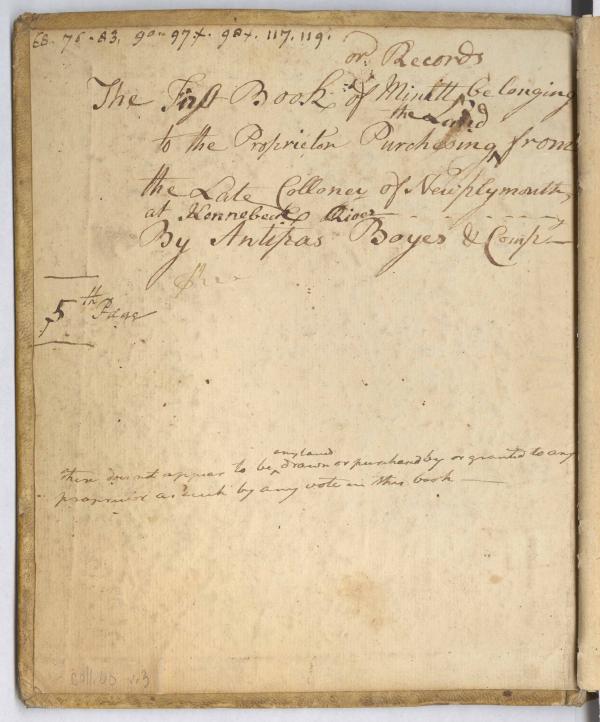 68. 75. 83. 90. 97+. 98+. 117. 119.
or Records
The First Book of Minitts belonging
the Land
to the Proprietors Purchesing from
the Late Colloney of Newplymouth,
at Kennebeck River
By Antipas Boyes & Comp
5th Page
any land
there does not appear to be drawn or purchased by or granted to any
proprietor as such by any vote in this book
coll. 60 v.3